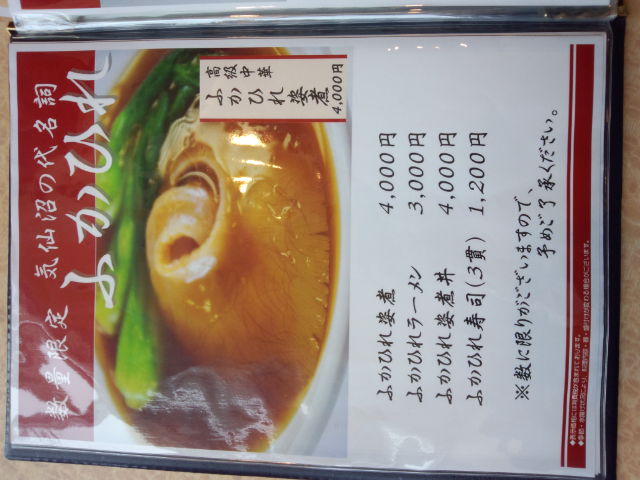 数量限定 気仙沼の代名詞
ふかひれ
高級中華
ふかひれ姿煮
4,000円
ふかひれ姿煮 4,000円
ふかひれラーメン 3,000円
ふかひれ姿煮丼 4,000円
ふかひれ寿司(3貫) 1,200円
※数に限りがございますので、
予めご了承ください。
◆表示価格には消費税が含まれております。